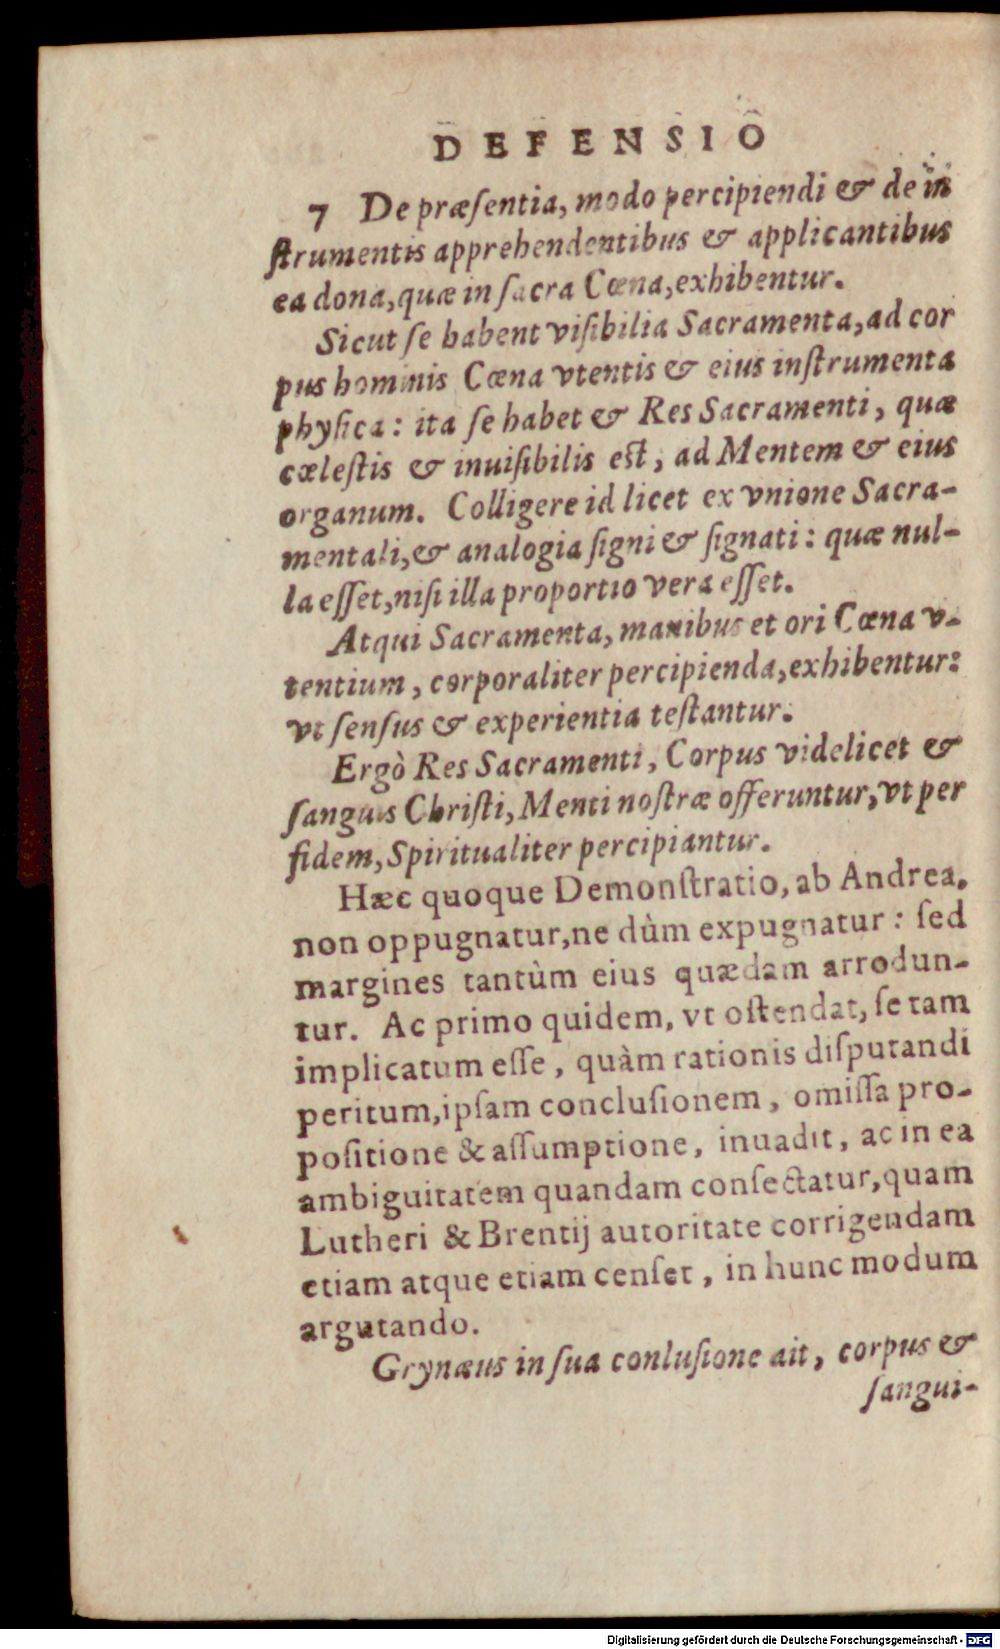 DEFENSIO
7 De præſentia, modo percipiendi & de in
ſtrumentis apprehendentibus & applicantibus
ea dona, quæ in ſacra Cœna, exhibentur.
Sicut ſe habent viſibilia Sacramenta, ad cor
pus hominis Cœna vtentis & eius inſtrumenta
phyſica: ita ſe habet & Res Sacramenti, quæ
cæleſtis & inuiſibilis eſt, ad Mentem & eius
organum. Colligere id licet ex vnione Sacra-
mentali, & analogia ſigni & ſignati: quæ nul-
la eſſet, niſi illa proportio vera eſſet.
Atqui Sacramenta, manibus et ori Cœna v-
tentium, corporaliter percipienda, exhibentur:
vt ſenſus & experientia teſtantur.
Ergò Res Sacramenti, Corpus videlicet &
ſanguis Chriſti, Menti noſtræ offeruntur, vt per
fidem, Spiritualiter percipiantur.
Hæc quoque Demonſtratio, ab Andrea.
non oppugnatur, ne dùm expugnatur: ſed
margines tantùm eius quædam arrodun-
tur. Ac primo quidem, vt oſtendat, ſe tam
implicatum eſſe, quàm rationis diſputandi
peritum, ipſam concluſionem, omiſſa pro-
poſitione & aſſumptione, inuadit, ac in ea
ambiguitatem quandam conſectatur, quam
Lutheri & Brentij autoritate corrigendam
etiam atque etiam cenſet, in hunc modum
argutando.
Grynæus in ſua conluſione ait, corpus &
ſangui-
Digitalisierung gefördert durch die Deutsche Forschungsgemeinschaft - DFG